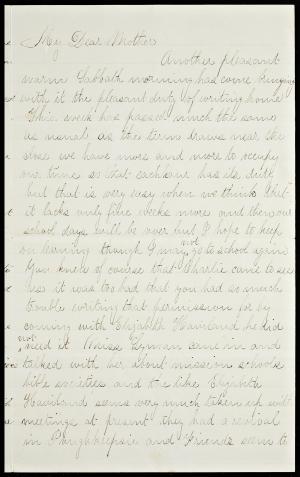 My Dear Mother
Another pleasant
warm Sabbath morning has come bringing
with it the pleasant duty of writing home
This week has passed much the same
as usual as the term draws near the
close we have more and more to occupy
our time so that each hour has its
but that is very easy when we think that
it lacks only five weeks more and then our
school days will be over but I hope to keep
on learning though I may not go to school again
You knew of course that Charlie came to see
us it was too bad that you had so much
trouble writing that permission for his
coming with Elizabeth Haviland he did
not need it Miss Lyman came in and
talked with her about mission schools
bible societies and the like Elizabeth
Haviland seems very much taken up with
meetings at present they had a revival
in Poughkeepsie and Friends seem to